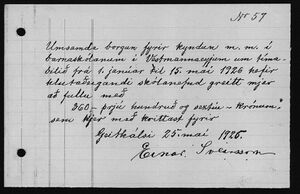 No 57
Umsamda borgun fyrir kyndun m. m. í
barnaskólanum í Vestmannaeyjum um tíma-
bilið frá 6 janúar til 15. maí 1926 hefir
hlutaðeigandi skólanefnd greitt mjer
að fullu með
360 - þrjú hundruð og sextíu - krónum
sem hjer með kvittast fyrir
25. maí 1926.
Einar Sveinsson